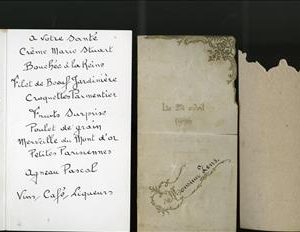 a Votre Santé
Crême Marie Stuart
Bouchées à la Reine
Filet de Boeuf Jardinière
Croquettes Parmentier
Fruits Surprise
Poulet de grain
Merveille du Mont d'or
Petites Parisiennes
Agneau Pascal
Vins, Café, Liqueurs
Le 24 avril